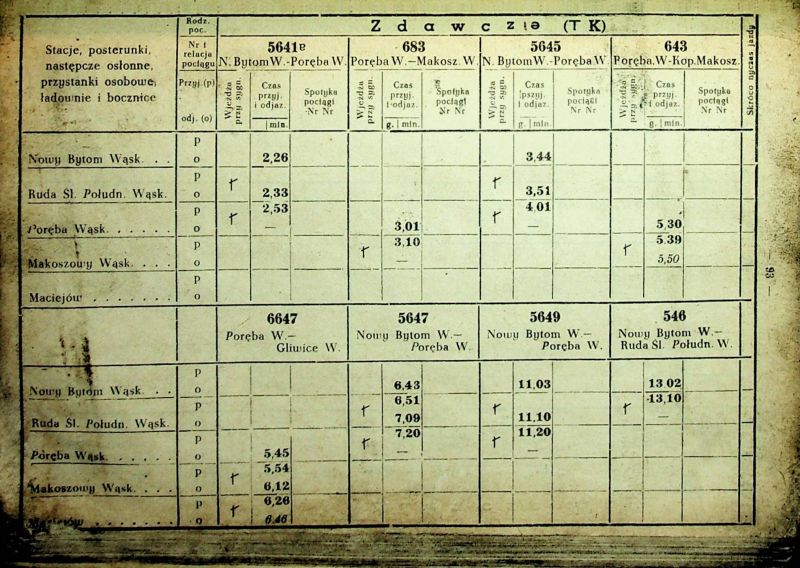 Rodz. poc. Zdawcze (TK)
Nr i relacja pociągu 5641ᴮ 683 5645 643
N. Bytom W.-Poręba W. Poręba W.—Makosz. W. N. Bytom W.-Poręba W. Poręba.W-Kop.Makosz.
Stacje, posterunki, następcze osłonne, przystanki osobowe, ładownie i bocznice
Przyj. (p)
odj. (o)
Wjeżdża przy sygn. Czas przyj. i odjaz. Spotyka pociągi Nr Nr Wjeżdża przy sygn. Czas przyj. i odjaz. Spotyka pociągi Nr Nr Wjeżdża przy sygn. Czas przyj. i odjaz. Spotyka pociągi Nr Nr Wjeżdża przy sygn. Czas przyj. i odjaz. Spotyka pociągi Nr Nr
min. g. min. g. min. g. min.
p
Nowy Bytom Wąsk. . . o 2,26 3,44
p
Ruda Śl. Połudn. Wąsk. o 2,33 3,51
p 2,53 4,01
Poręba Wąsk. . . . . . o — 3,01 — 5,30
p 3,10 5.39
Makoszowy Wąsk. . . . o — 5,50
p
Maciejów . . . . . . . o
— 93
6647 5647 5649 546
Poręba W.— Nowy Bytom W.— Nowy Bytom W.— Nowy Bytom W.—
Gliwice W. Poręba W. Poręba W. Ruda Śl. Połudn. W.
p
Nowy Bytom Wąsk. . . o 6,43 11,03 13 02
p 6,51 13,10
Ruda Śl. Połudn. Wąsk. o 7,09 11,10 —
p 7,20 11,20
Poręba Wąsk. . . . . . o 5,45 — —
p 5,54
Makoszowy Wąsk. . . . o 6,12
p 6,26
Maciejów . . . . . . . o 6,46